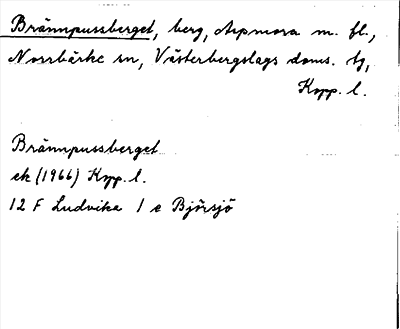 Brännpussberget, berg, Aspmora m. fl.,
Norrbärke sn, Västerbergslags doms. tg,
Kopp. l.
Brännpussberget
ek (1966) Kopp. l.
12 F Ludvika 1 e Björsjö